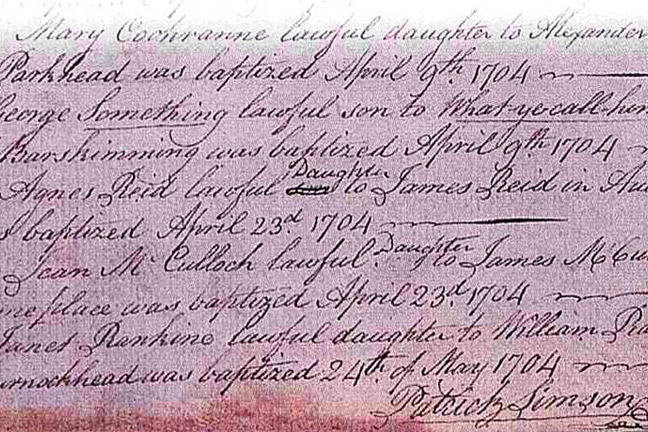 Mary Cochranne lawful daughter to Alexander
Parkhead was baptized April 9th. 1704
George Something lawful son to What-ye-call-him
Barskimming was baptized April 9th 1704
Agnes Reid lawful Daughter to James Reid in
baptized April 23d 1704
Jean Mc Culloch lawful Daughter to James
place was baptized April 23d. 1704
Janet Rankine lawful daughter to William
was baptized 24th of May 1704
Patrick Simson